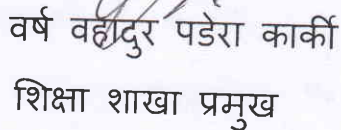 वर्ष वहादुर पडेरा कार्की
शिक्षा शाखा प्रमुख